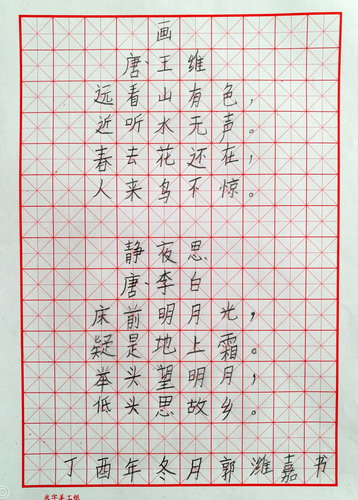 画
唐、王维
远看山有色，
近听水无声。
春去花还在，
人来鸟不惊。
静夜思
唐、李白
床前明月光，
疑是地上霜。
举头望明月，
低头思故乡。
丁酉年冬月郭潍嘉书